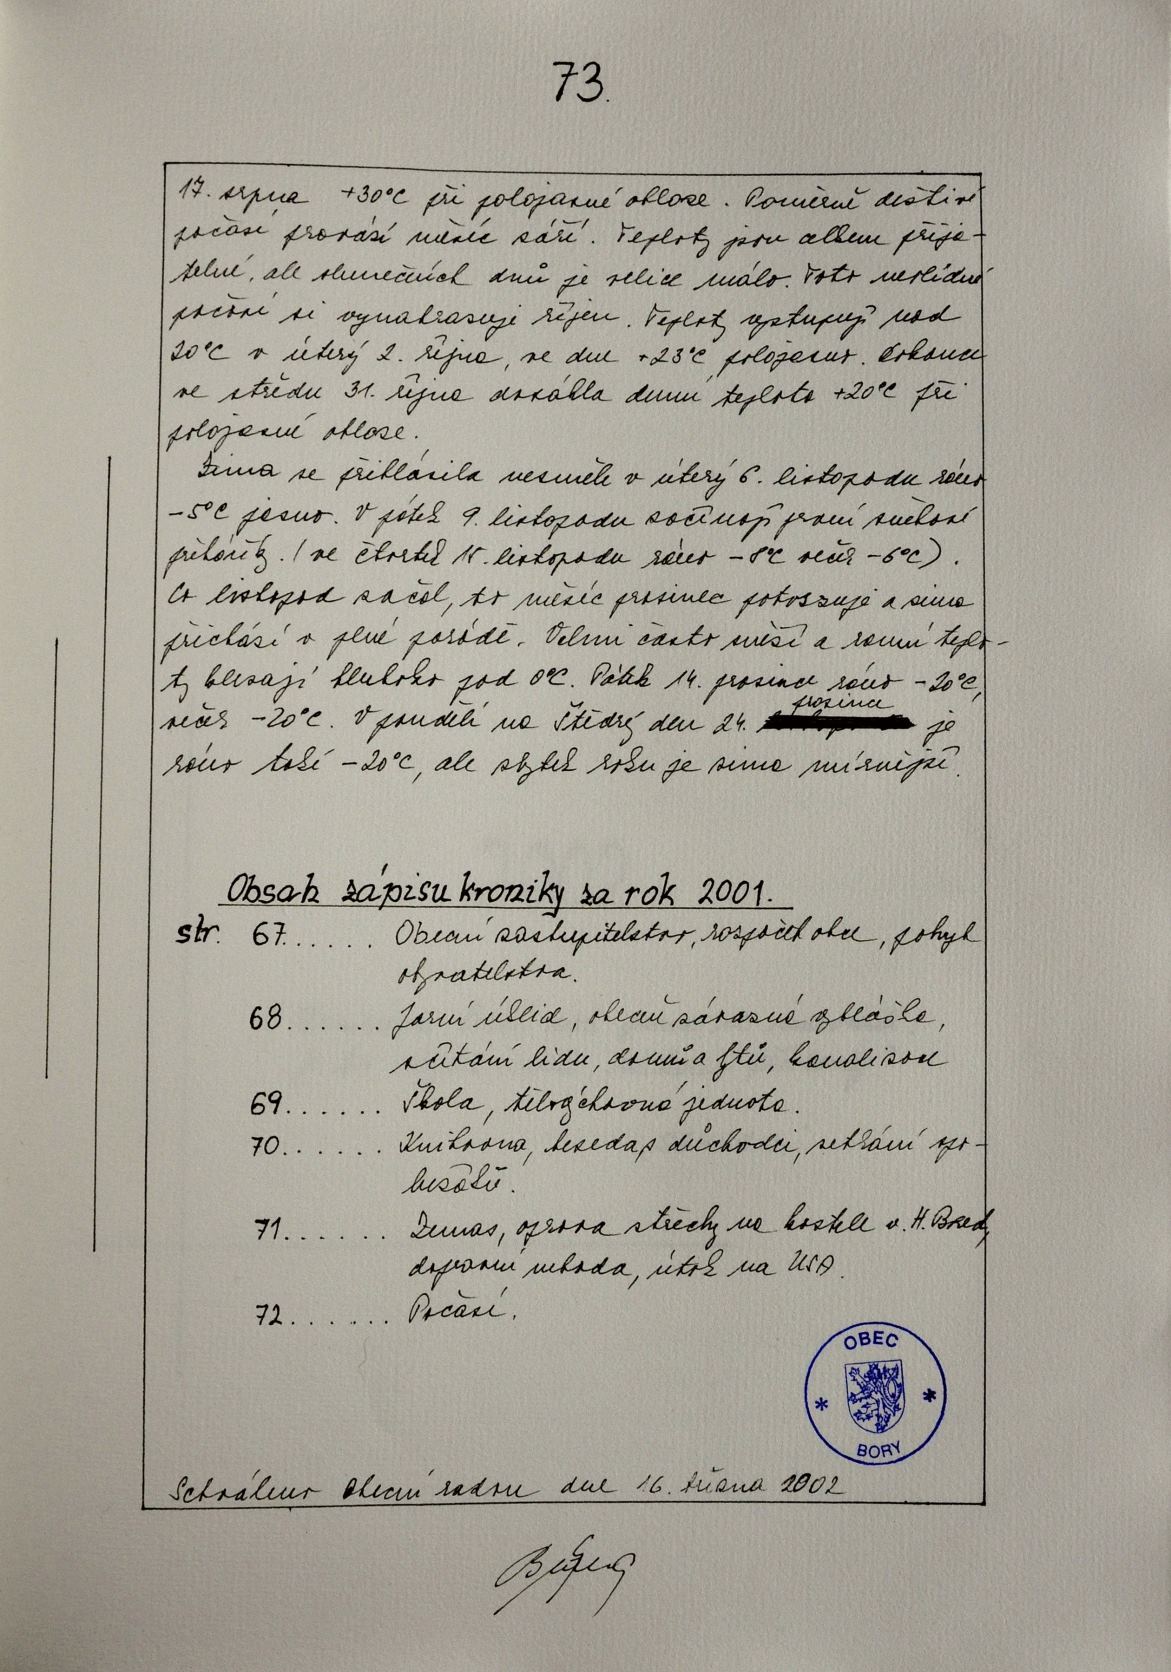 73.
17. srpna +30°C při polojasné obloze. Poměrně deštivé
počasí provází měsíc září. Teploty jsou celkem přija-
telné, ale slunečních dnů je velice málo. Toto nevlídné
počasí si vynahrazuje říjen. Teploty vystupují nad
20°C v úterý 2. října, ve dne +23°C, polojasno. Dokonce
ve středu 31. října dosáhla denní teplota +20°C při
polojasné obloze.
Zima se přihlásila nesměle v úterý 6. listopadu ráno
-5°C jasno. V pátek 9. listopadu začínají první sněhové
přeháňky. (ve čtvrtek 15. listopadu ráno -8°C večer -6°C).
Co listopad začal, to měsíc prosinec potvrzuje a zima
přichází v plné parádě. Velmi často sněží a ranní teplo-
ty klesají hluboko pod 0°C. Pátek 14. prosince ráno -20°C,
večer -20°C. V pondělí na Štědrý den 24. prosince je
ráno také -20°C, ale zbytek roku je zima mírnější.
Obsah zápisu kroniky za rok 2001.
str. 67...... Obecní zastupitelstvo, rozpočet obce, pohyb
obyvatelstva.
68...... Jarní úklid, obecně závazná vyhláška,
sčítání lidu, domů a bytů, kanalizace
69...... Škola, tělovýchovná jednota.
70...... Knihovna, beseda s důchodci, setkání zpo-
bežáků.
71...... Zemas, oprava střechy na kostele v H. Borech,
dopravní nehoda, útok na USA.
72...... Počasí.
OBEC
* *
BORY
Schváleno Obecní radou dne 16. května 2002